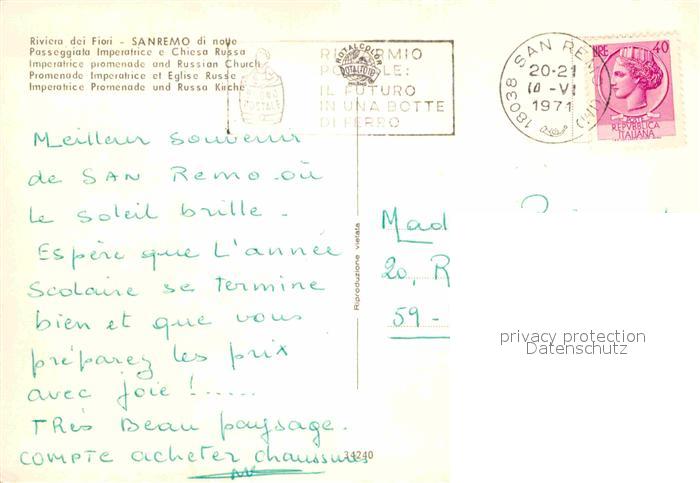 Riviera dei Fiori - SANREMO di notte
Passeggiata Imperatrice e Chiesa Russa
Imperatrice promenade and Russian Church
Promenade Imperatrice et Eglise Russe
Imperatrice Promenade und Russa Kirche
ROTALCOLOR
ROTALFOTO
RISPARMIO
POSTALE:
IL FUTURO
IN UNA BOTTE
DI FERRO
18038 SAN REMO (IM)
20-21
10 -VI
1971
LIRE 40
POSTE
REPVBBLICA
ITALIANA
Meilleur Souvenir
de SAN Remo où
le soleil brille -
Espère que L'année
Scolaire se Termine
bien et que vous
préparez les prix
avec joie !......
TRès Beau paysage.
COMPTE acheter chaussures
Riproduzione vietata
34240
Mad
20, R
59 -
privacy protection
Datenschutz